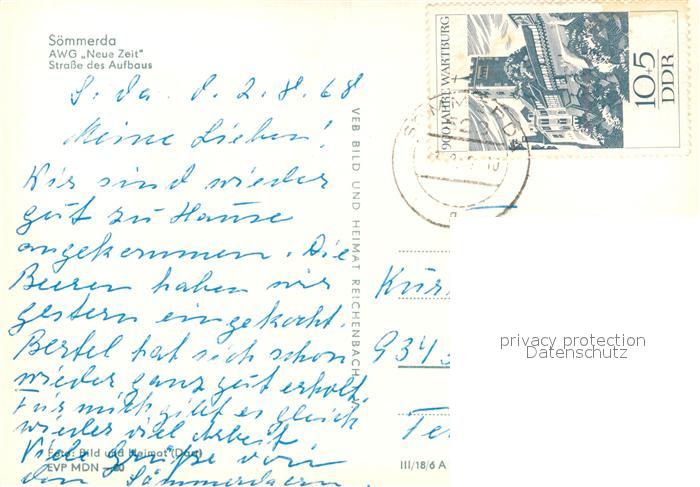 Sömmerda
AWG „Neue Zeit"
Straße des Aufbaus
S. da. d. 2. 8. 68
Meine Lieben!
Wir sind wieder
gut zu Hause
angekommen. Die
Beeren haben wir
gestern eingekocht.
Bertel hat sich schon
wieder ganz gut erholt,
Für mich gibt es gleich
wieder viel Arbeit.
Viele Grüße von
den Sömmerdaern
Foto: Bild und Heimat (Darr)
EVP MDN –,20
VEB BILD UND HEIMAT REICHENBACH
III/18/6 A
900 JAHRE WARTBURG
10+5
DDR
Kur
934
Te
privacy protection
Datenschutz